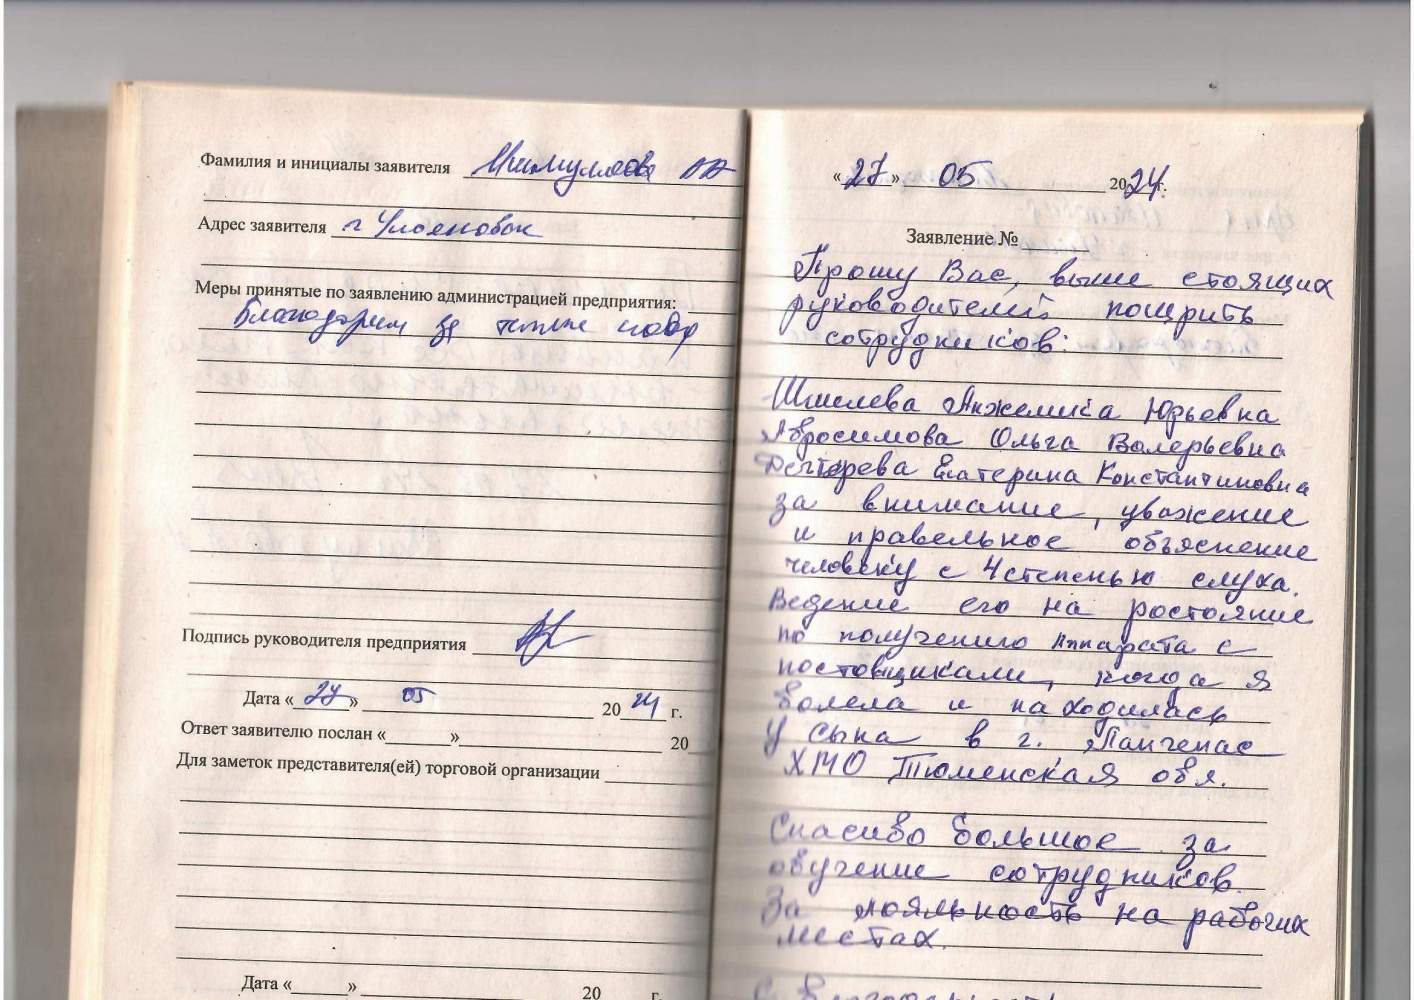 Фамилия и инициалы заявителя
Адрес заявителя г Ульяновск
Меры принятые по заявлению администрацией предприятия:
Благодарим за теплые слова
Подпись руководителя предприятия
Дата «27» 05 2024 г.
Ответ заявителю послан «      » 20
Для заметок представителя(ей) торговой организации
Дата «      » 20 г.
«27» 05 2024 г.
Заявление №
Прошу Вас, выше стоящих
руководителей поощрить
сотрудников:
Шмелева Анжелика Юрьевна
Абросимова Ольга Валерьевна
Дегтерева Екатерина Константиновна
за внимание, уважение
и правельное объяснение
человеку с 4 степенью слуха.
Ведение его на ростояние
по получению Аппарата с
постовщиками, когда я
болела и находилась
у сына в г. Лангепас
ХМО Тюменская обл.
Спасибо большое за
обучение сотрудников.
За лояльность на рабочих
местах.
С благодарностью